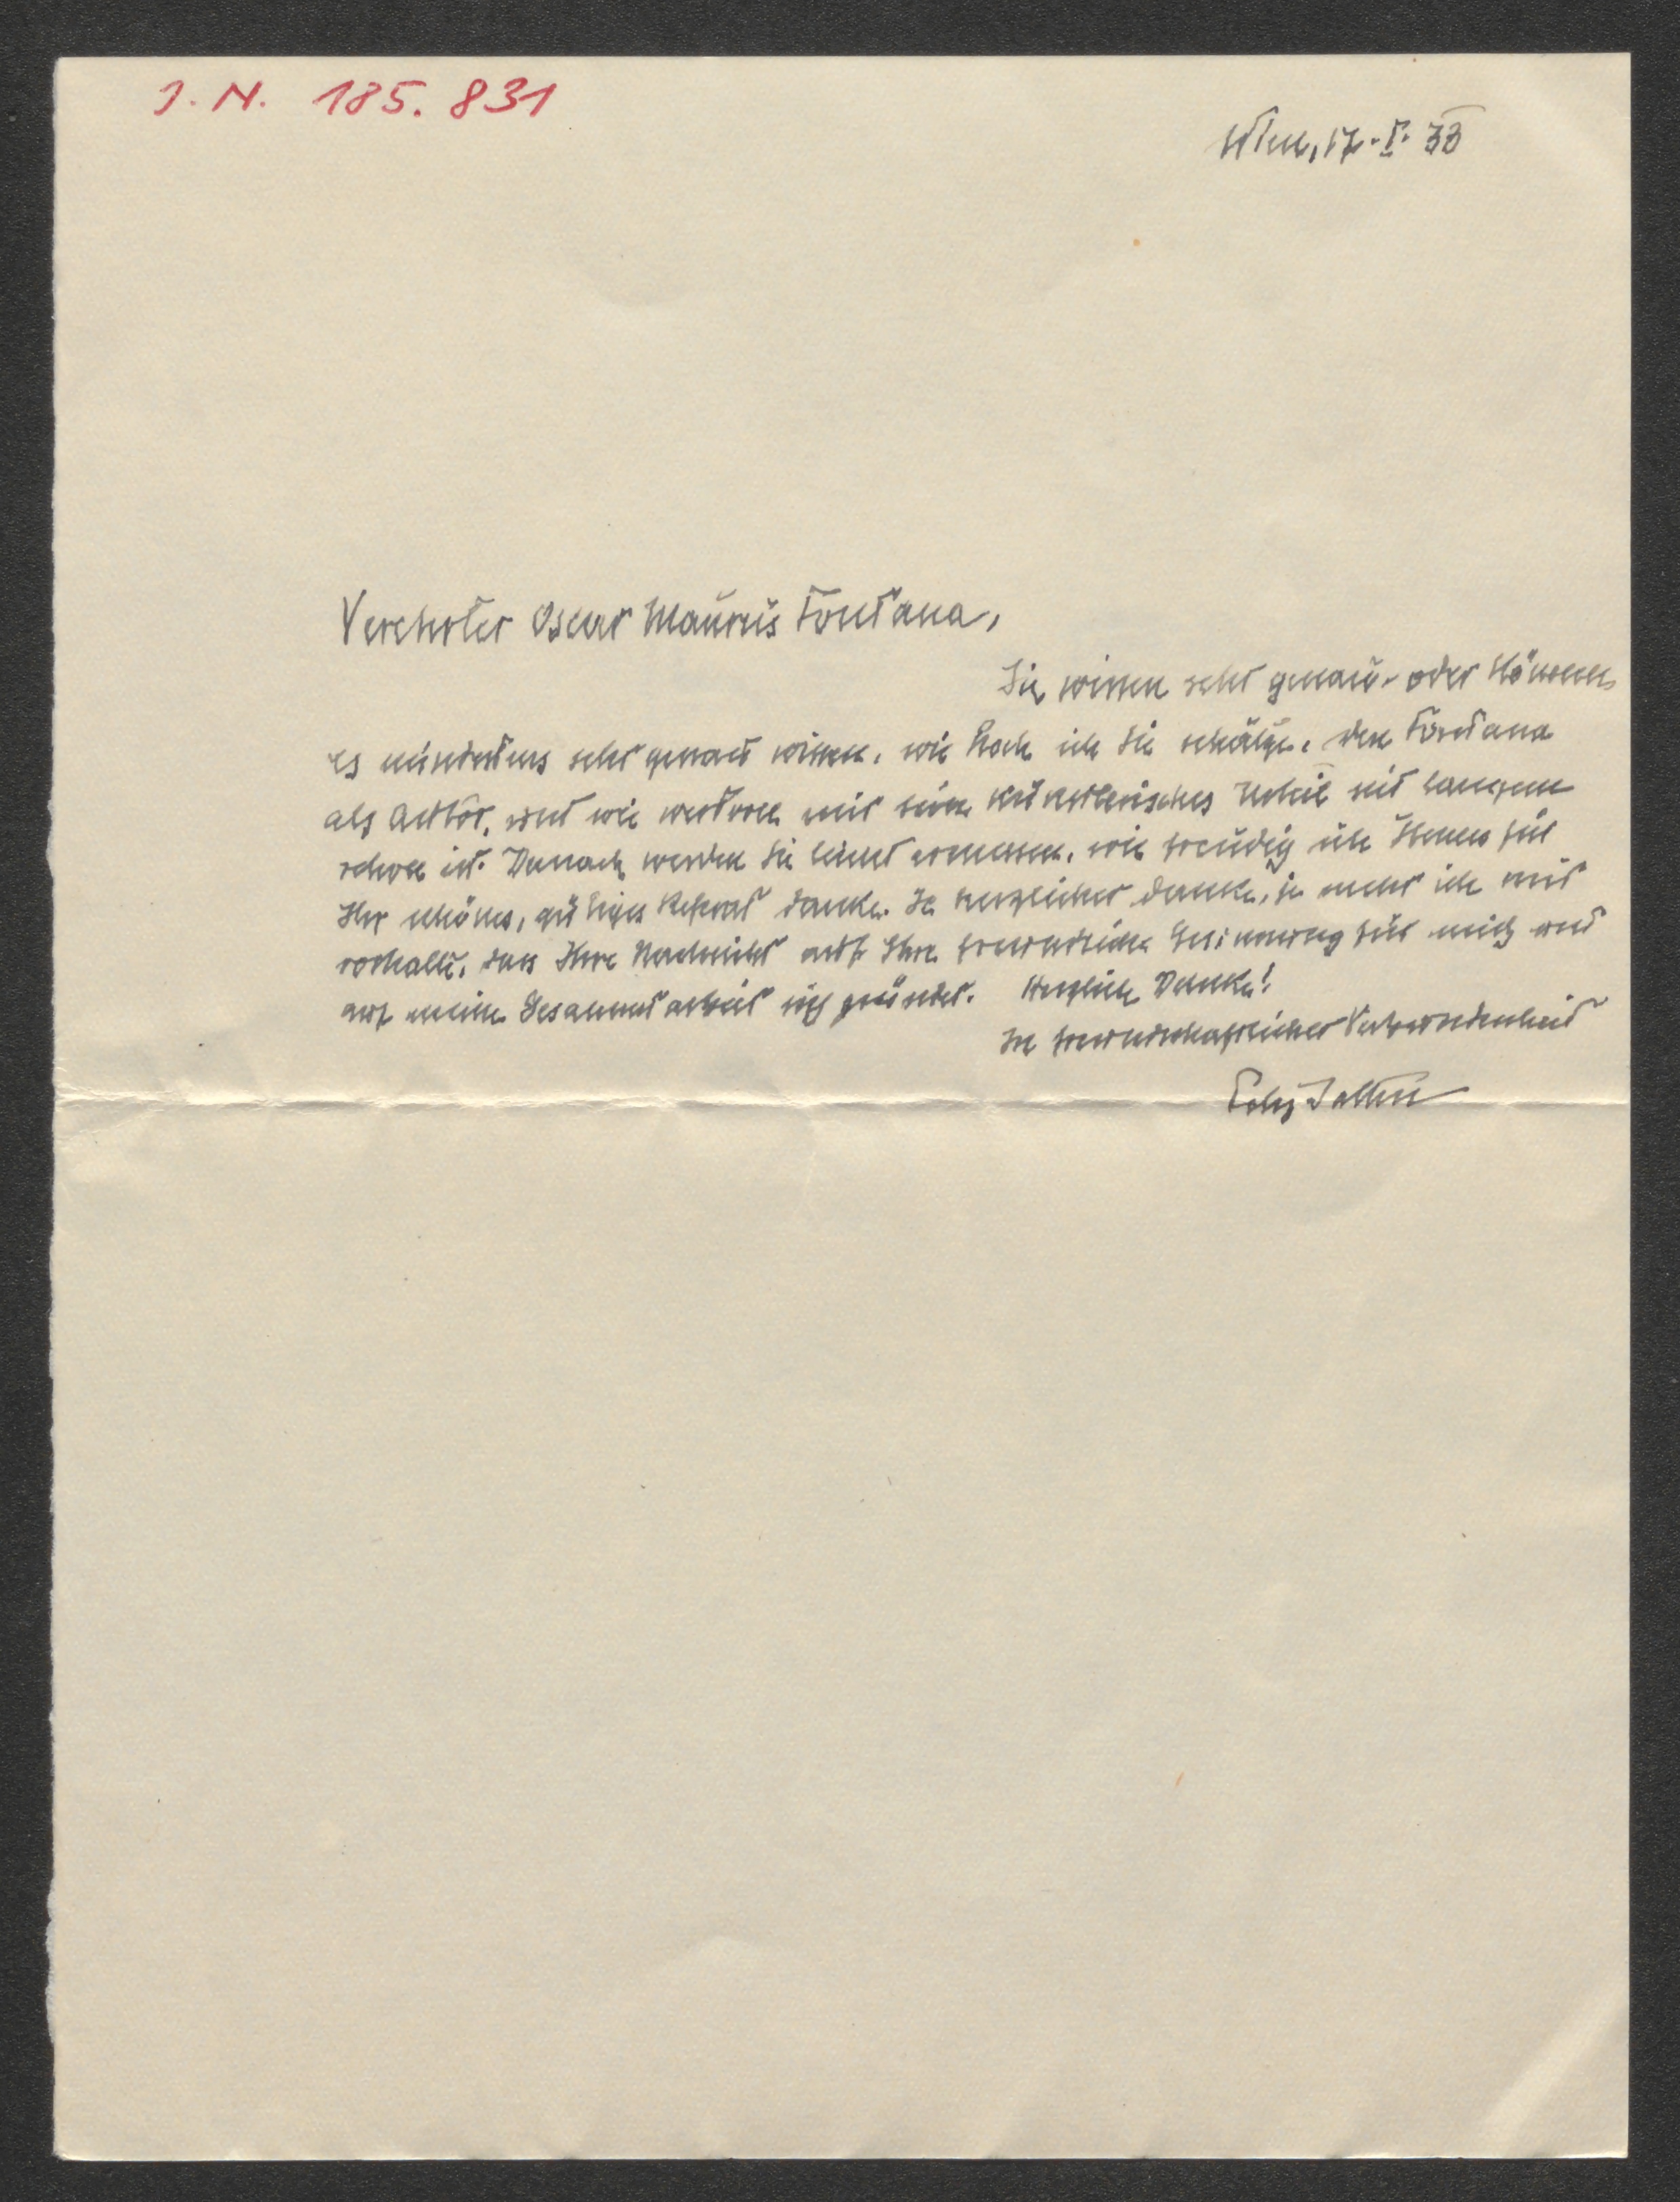 J. N. 185.831
Wien, 17. I. 33
Verehrter Oscar Maurus Fontana,
Sie wissen sehr genau oder können
es mindestens sehr genau wissen, wie hoch ich Sie schätze, den Fontana
als Autor, und wie wertvoll mir sein künstlerisches Urteil seit langem
schon ist. Danach werden Sie leicht ermessen, wie freudig ich Ihnen für
Ihr schönes, gütiges Referat danke. Je herzlicher danke, je mehr ich mir
vorhalte, dass Ihre Nachsicht auf Ihre freundliche Gesinnung für mich und
auf meine Gesammtarbeit sich gründet. Herzlich Danke!
In freundschaftlicher Verbundenheit
Felix Salten